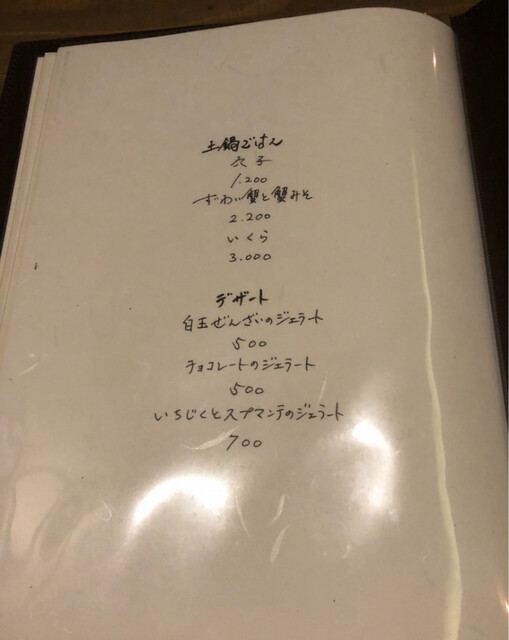 土鍋ごはん
穴子
1.200
ずわい蟹と蟹みそ
2.200
いくら
3.000
デザート
白玉ぜんざいのジェラート
500
チョコレートのジェラート
500
いちじくとスプマンテのジェラート
700